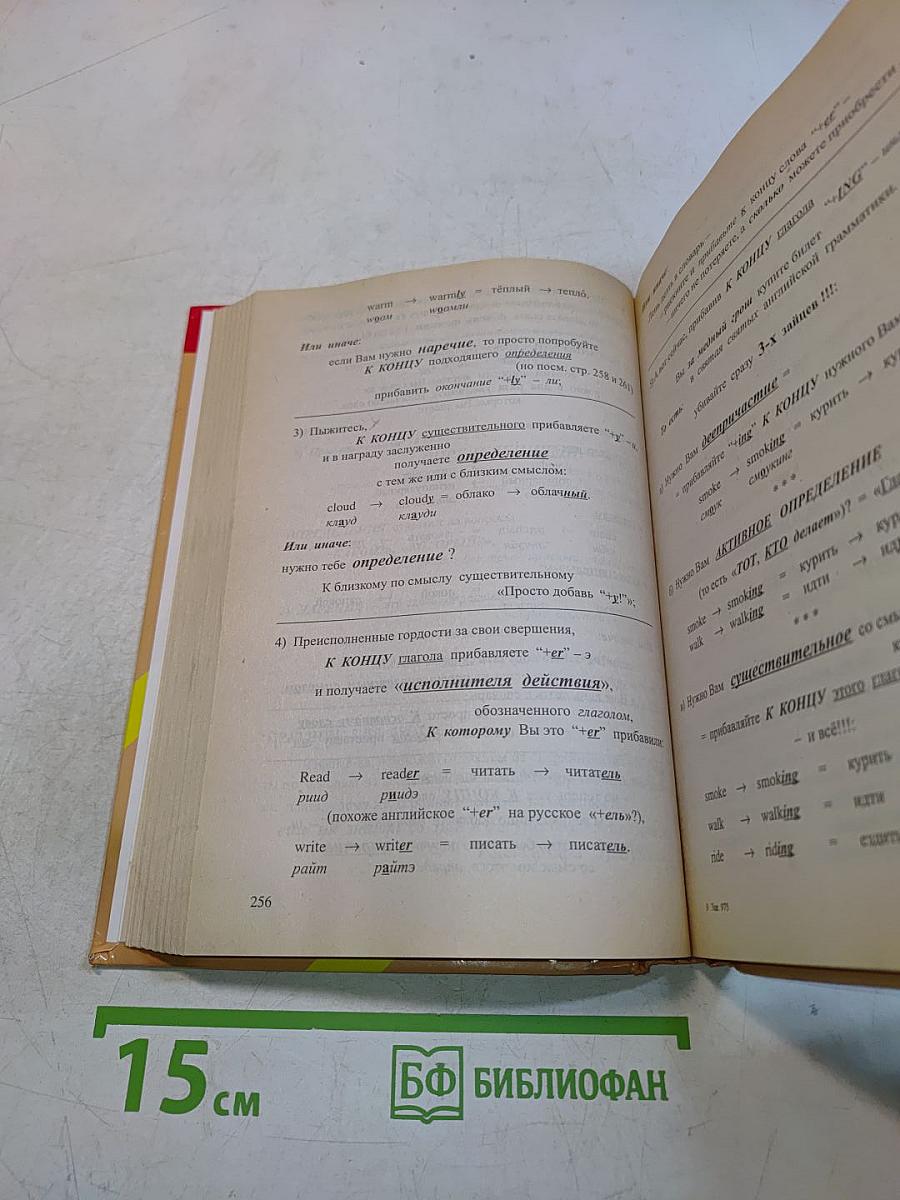 warm → warmly = тёплый → теплó.
wоом wоомли
Или иначе:
если Вам нужно наречие, то просто попробуйте
К КОНЦУ подходящего определения
(но посм. стр. 258 и 261)
прибавить окончание “+ly” – ли;
3) Пыжитесь,
К КОНЦУ существительного прибавляете “+y” – и,
и в награду заслуженно
получаете определение
с тем же или с близким смыслом:
cloud → cloudy = облако → облачный.
клауд клауди
Или иначе:
нужно тебе определение ?
К близкому по смыслу существительному
«Просто добавь “+y!”»;
4) Преисполненные гордости за свои свершения,
К КОНЦУ глагола прибавляете “+er” – э
и получаете «исполнителя действия»,
обозначенного глаголом,
К которому Вы это “+er” прибавили:
Read → reader = читать → читатель
риид риидэ
(похоже английское “+er” на русское «+ель»?),
write → writer = писать → писатель.
райт райтэ
256
К концу слова “+er” –
ничего не потеряете, а сколько можете приобрести
5) А вот сейчас, прибавив К КОНЦУ глагола “+ING” –
Вы за медный грош купите билет
в святая святых английской грамматики.
То есть: убивайте сразу 3-х зайцев !!!:
а) Нужно Вам деепричастие =
= прибавляйте “+ing” К КОНЦУ нужного Вам
smoke → smoking = курить →
смоук смоукинг
* * *
б) Нужно Вам АКТИВНОЕ ОПРЕДЕЛЕНИЕ
(то есть «ТОТ, КТО делает»)? =
smoke → smoking = курить →
walk → walking = идти →
* * *
в) Нужно Вам существительное со
= прибавляйте К КОНЦУ этого
– и всё!!!:
smoke → smoking = курить
walk → walking = идти
ride → riding =
9 Зак. 975
15 см
БФ БИБЛИОФАН